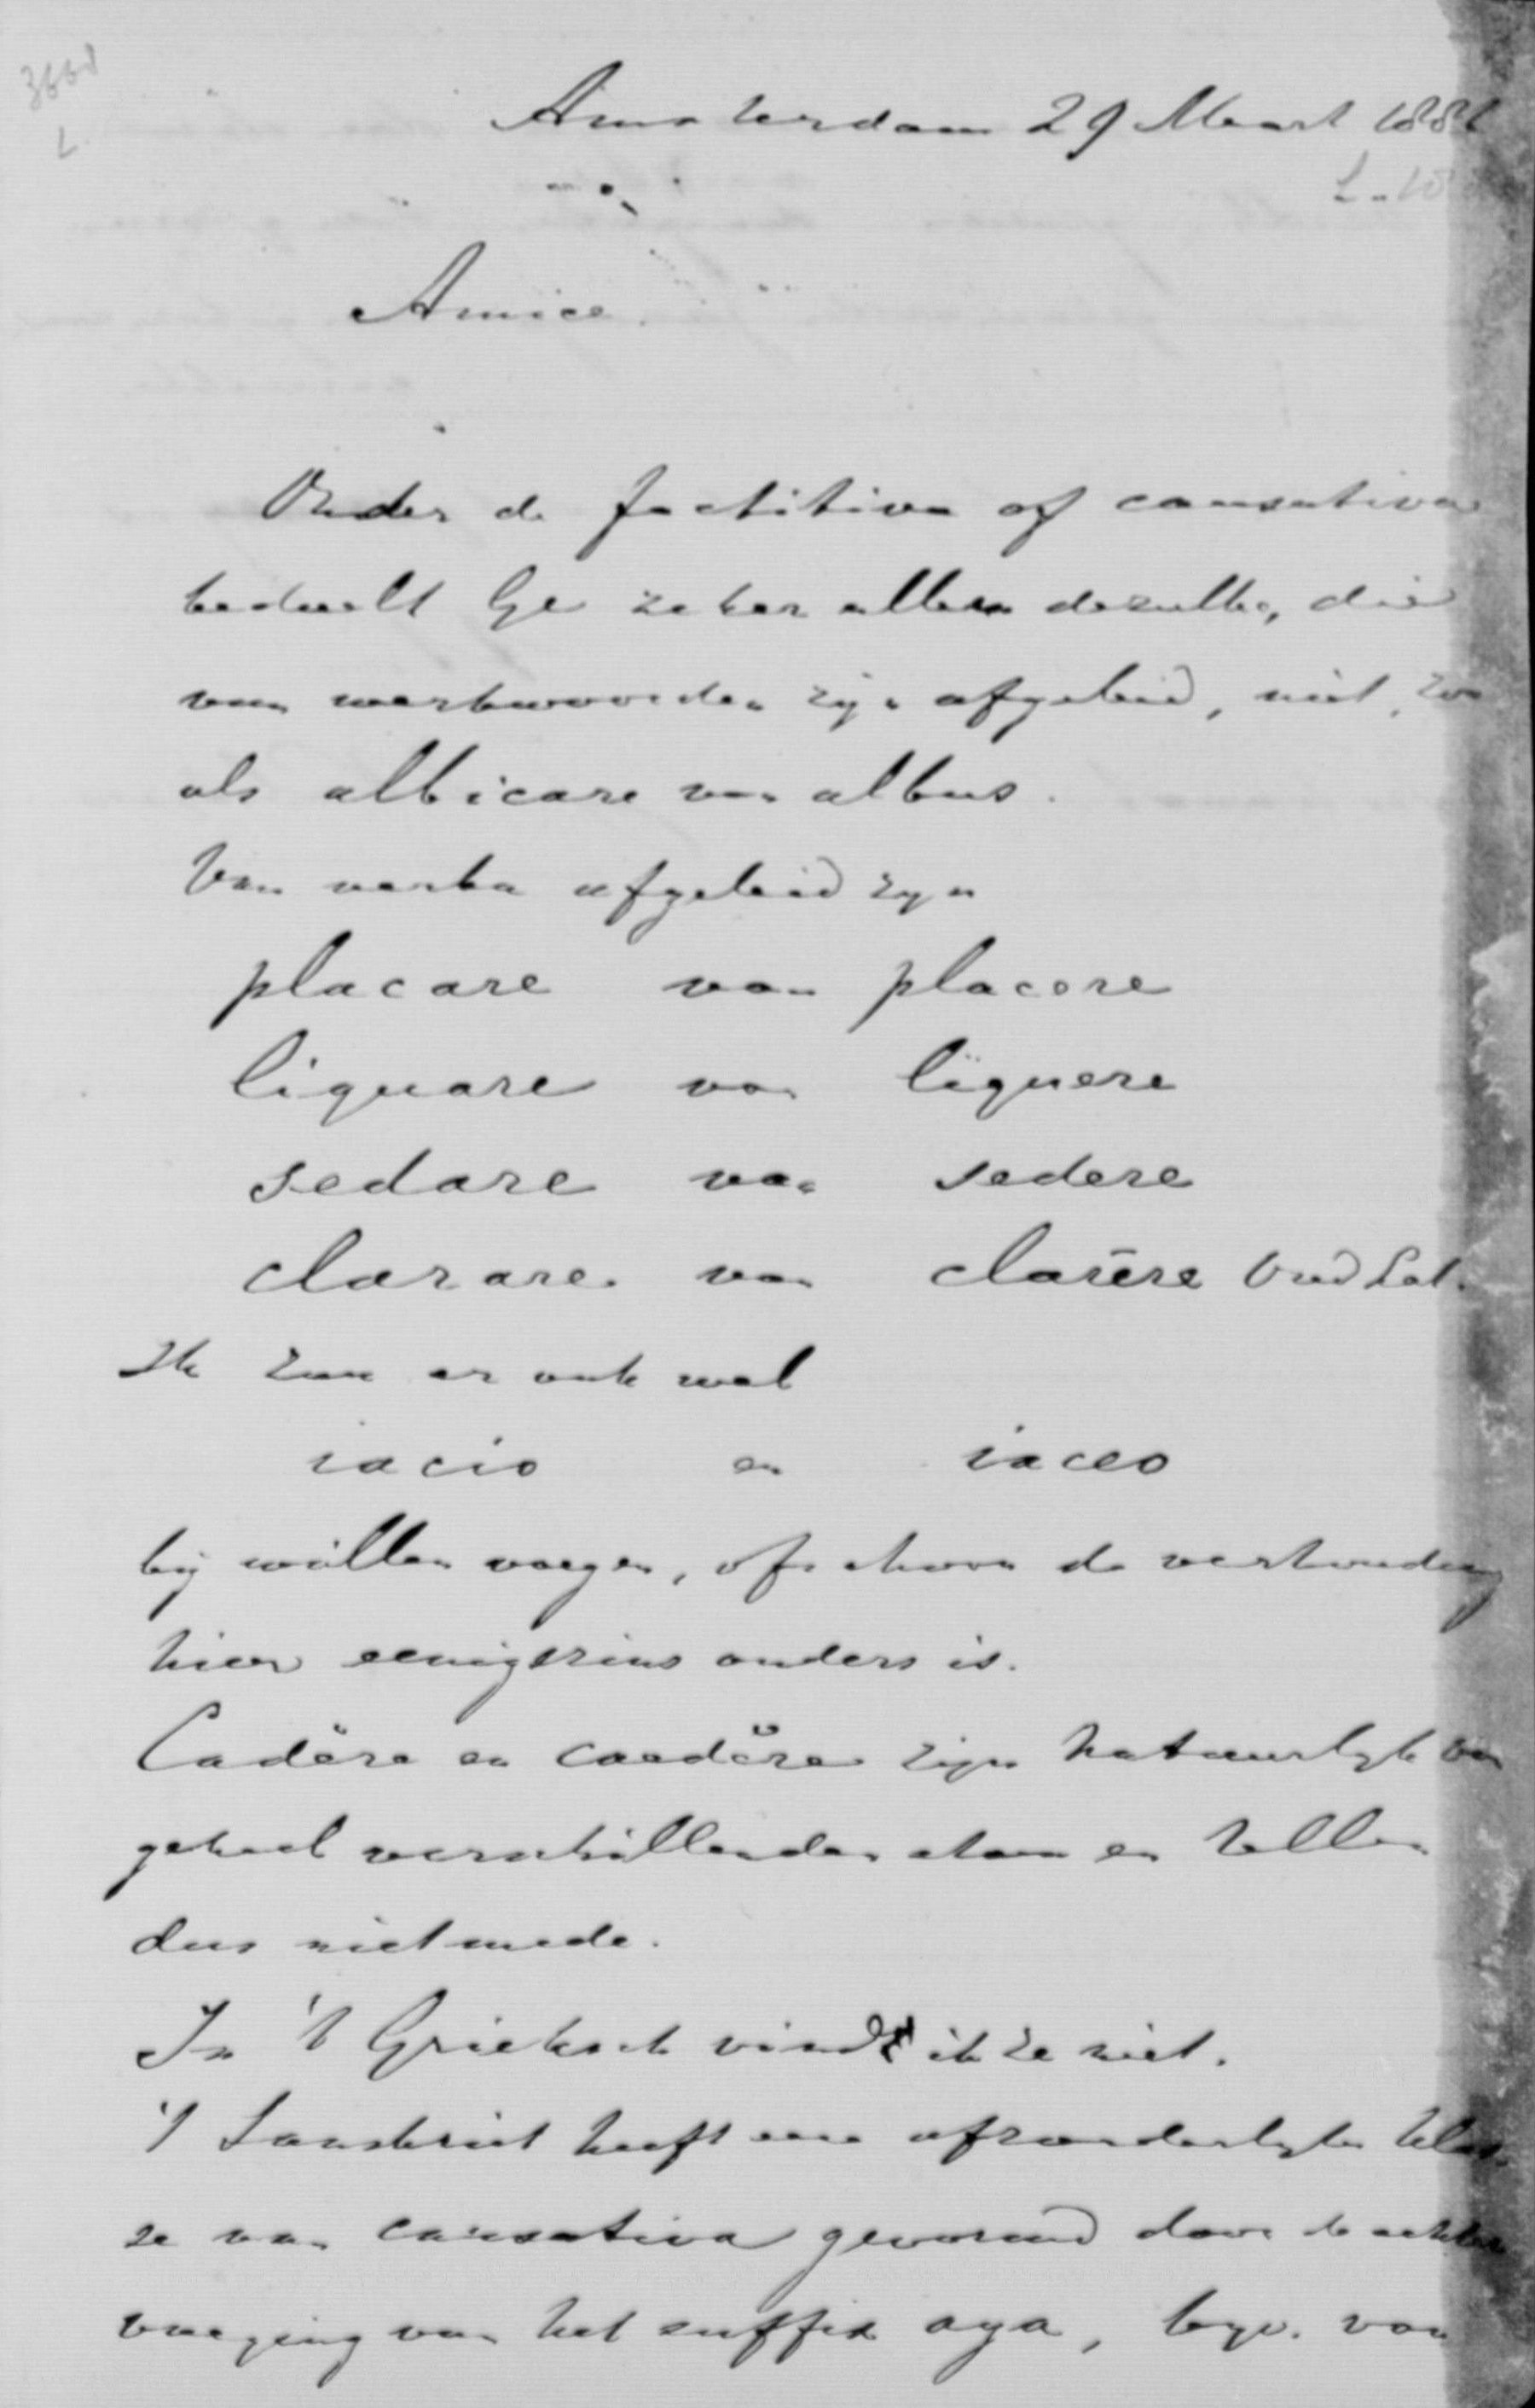 3668
L.
Amsterdam 29 Maart 188
Amice.
Onder de factitiva of causativa
bedoelt Ge zeker alleen dezulke, die
van werkwoorden zijn afgeleid, niet, zoo
als albicare van albus.
Van verba afgeleid zijn
placare van placere
liquare van lĭquere
sedare van sedere
clarare van clarēre Oud Lat.
Ik zou er ook wel
iacio en iaceo
bij willen voegen, ofschoon de verhouding
hier eenigszins anders is.
Cadĕre en caedĕre zijn natuurlijk van
geheel verschillenden stam en tellen
dus niet mede.
In 't Grieksch vind ik ze niet.
't Sanskriet heeft eene afzonderlijke klas-
se van causativa gevormd door de achter
voeging van het suffix aya, byv. van